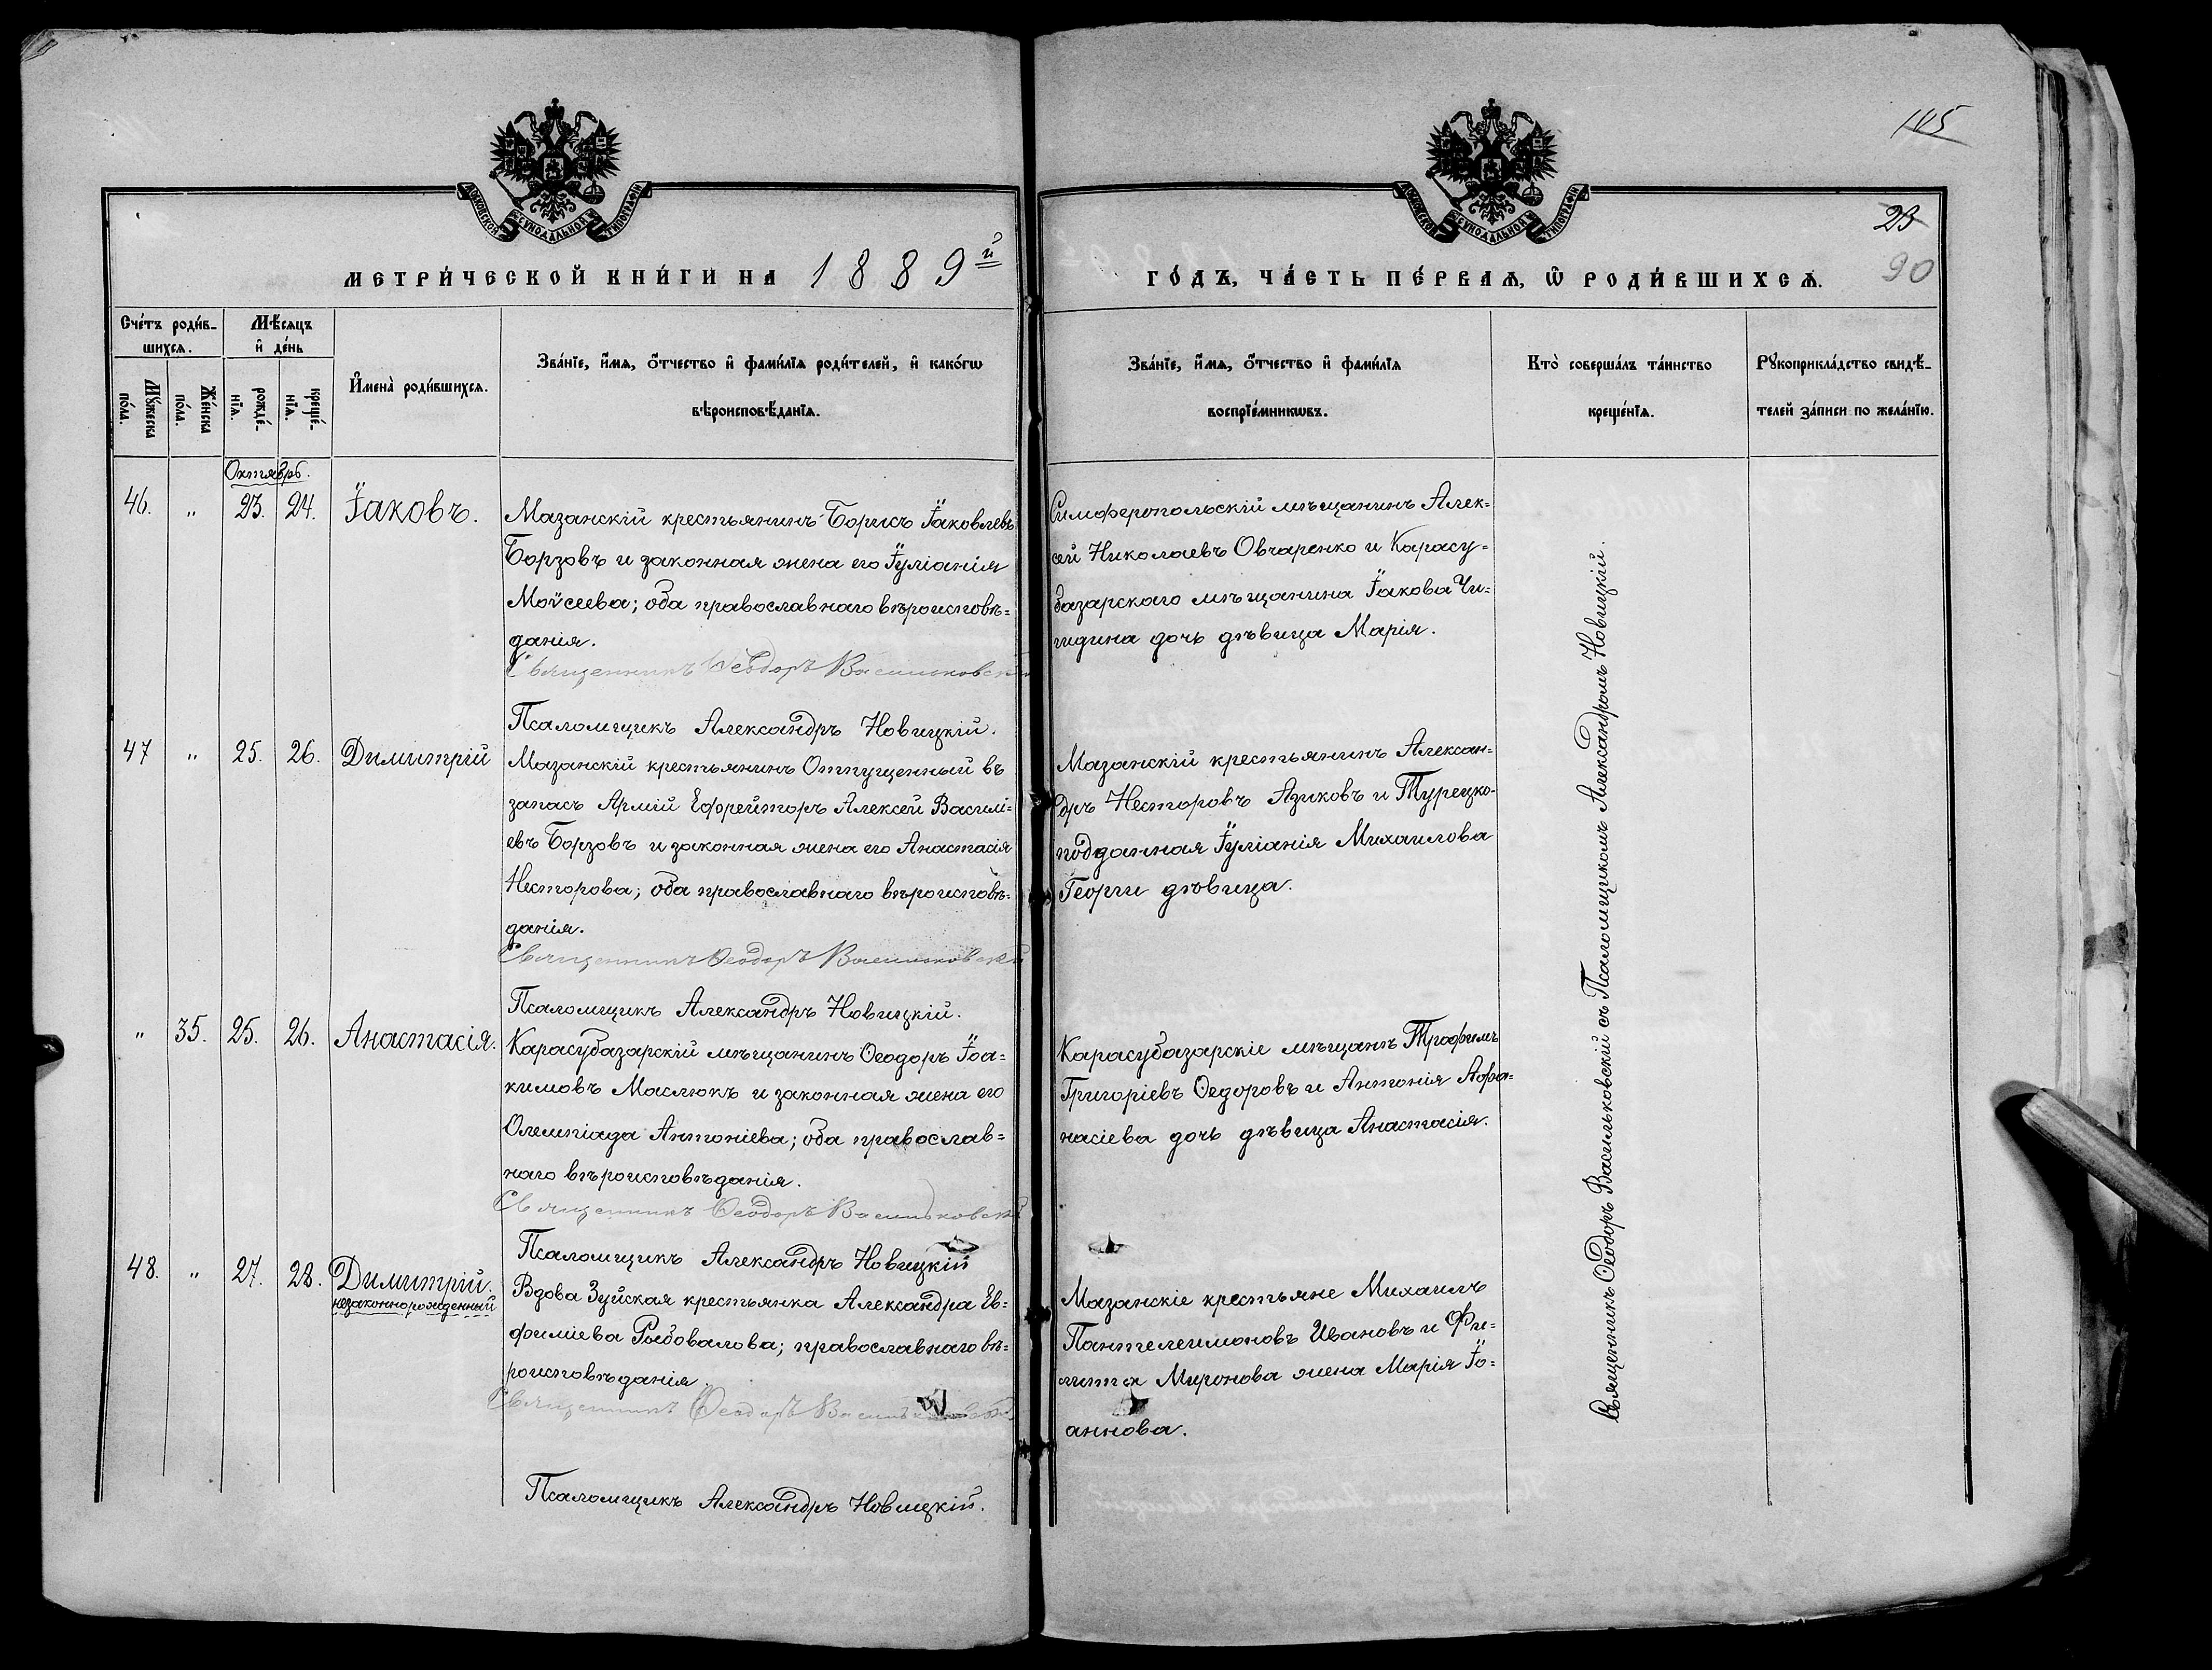 145
МОСКОВСКОЙ СѴНОДАЛЬНОЙ ТИПОГРАФІИ
МОСКОВСКОЙ СѴНОДАЛЬНОЙ ТИПОГРАФІИ
23
90
МЕТРИ́ЧЕСКОЙ КНИ́ГИ НА 1889й
ГО́ДЪ, ЧА́СТЬ ПЕ́РВАѦ, Ѡ РОДИ́ВШИХСѦ.
Сче́тъ роди́в-
шихсѧ.
Мѣ́сѧцъ
и҆ де́нь
Мꙋ́жеска
по́ла.
Же́нска
по́ла.
рожде́-
нїѧ.
креще́-
нїѧ.
И҆мена̀ роди́вшихсѧ.
Зва́нїе, и҆́мѧ, ѻ҆́тчество и҆ фами́лїѧ роди́телей, и҆ како́гѡ
вѣроисповѣ́данїѧ.
Зва́нїе, и҆́мѧ, ѻ҆́тчество и҆ фами́лїѧ
воспрїе́мникѡвъ.
Кто̀ соверша́лъ та́инство
креще́нїѧ.
Рꙋкоприкла́дство свидѣ́-
телей за́писи по жела́нїю.
Октябрь.
46. „ 23. 24. Іаковъ.
Мазанскій крестьянинъ Борисъ Іаковлевъ
Борзовъ и законная жена его Іуліанія
Моисеева; оба православнаго вѣроисповѣ=
данія.
Священникъ Ѳеодоръ Васильковскій
Псаломщикъ Александръ Новицкій.
Симферопольскій мѣщанинъ Алек=
сей Николаевъ Овчаренко и Карасу=
базарскаго мѣщанина Іакова Чи=
гидина дочь дѣвица Марія.
47 „ 25. 26. Димитрій
Мазанскій крестьянинъ Отпущенный въ
запасъ Армій Ефрейторъ Алексей Василі=
евъ Борзовъ и законная жена его Анастасія
Несторова; оба православнаго вѣроисповѣ=
данія.
Священникъ Ѳеодоръ Васильковскій
Псаломщикъ Александръ Новицкій.
Мазанскій крестьянинъ Алексан=
дръ Несторовъ Азиковъ и Турецко-
подданная Іуліанія Михаилова
Георги дѣвица.
„ 35. 25. 26. Анастасія.
Карасубазарскій мѣщанинъ Ѳеодоръ Іоа=
кимовъ Маслюкъ и законная жена его
Олемпіада Антоніева; оба православ=
наго вѣроисповѣданія.
Священникъ Ѳеодоръ Васильковскій
Псаломщикъ Александръ Новицкій
Карасубазарскіе мѣщанъ Трофимъ
Григоріевъ Ѳедоровъ и Антонія Афа=
насіева дочь дѣвица Анастасія.
48. „ 27. 28. Димитрій.
незаконнорожденный
Вдова Зуйская крестьянка Александра Ев=
фиміева Рыбовалова; православнаго вѣ=
роисповѣданія.
Священникъ Ѳеодоръ Васильковскій
Псаломщикъ Александръ Новицкій.
Мазанскіе крестьяне Михаилъ
Пантелеимоновъ Ивановъ и Фи=
липпа Миронова жена Марія Іо=
аннова.
Священникъ Ѳеодоръ Васильковскій съ Псаломщикомъ Александромъ Новицкій.